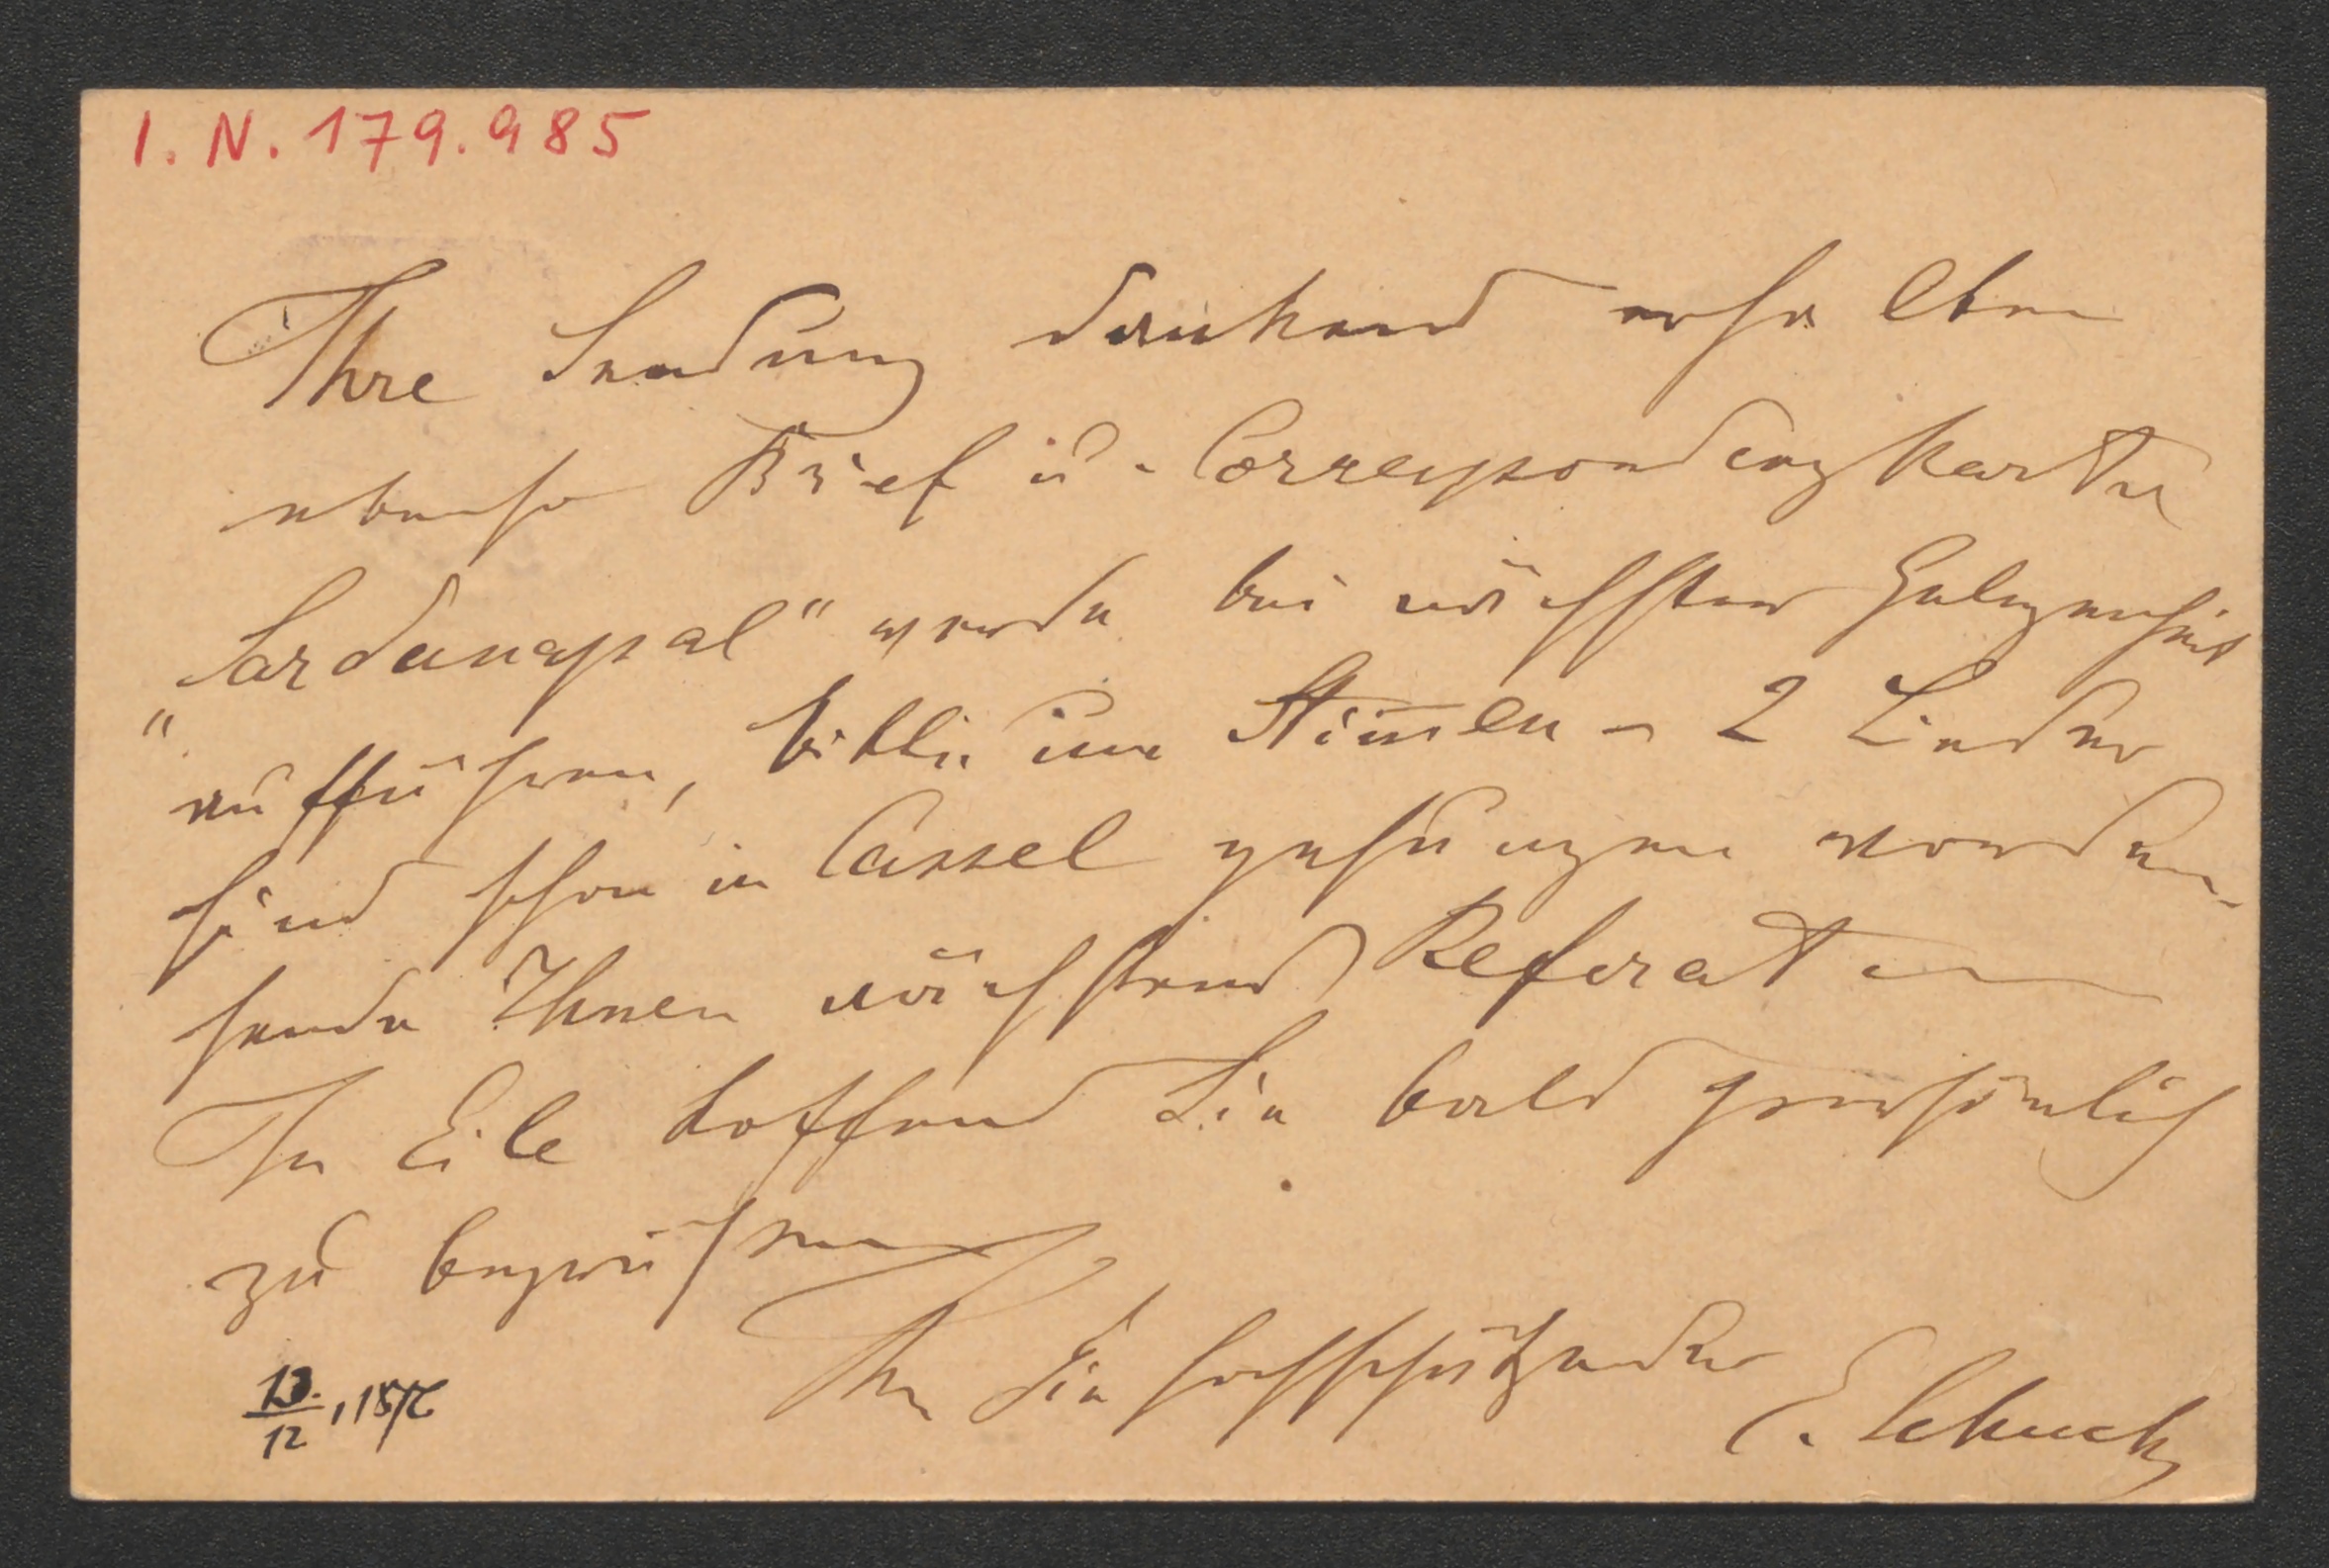 I.N. 179.985
Ihre Sendung dankend erhalten
ebenso Brief u. Correspondenzkarte
"Sardanapal" werde bei nächster Gelegenheit
aufführen, bitte um Stim̅en – 2 Lieder
sind schon in Cassel gesungen worden –
sende Ihnen nächstens Referate
In Eile hoffend Sie bald persönlich
zu begrüßen
Ihr Sie hochschätzender
E. Schuch
13./12, 187